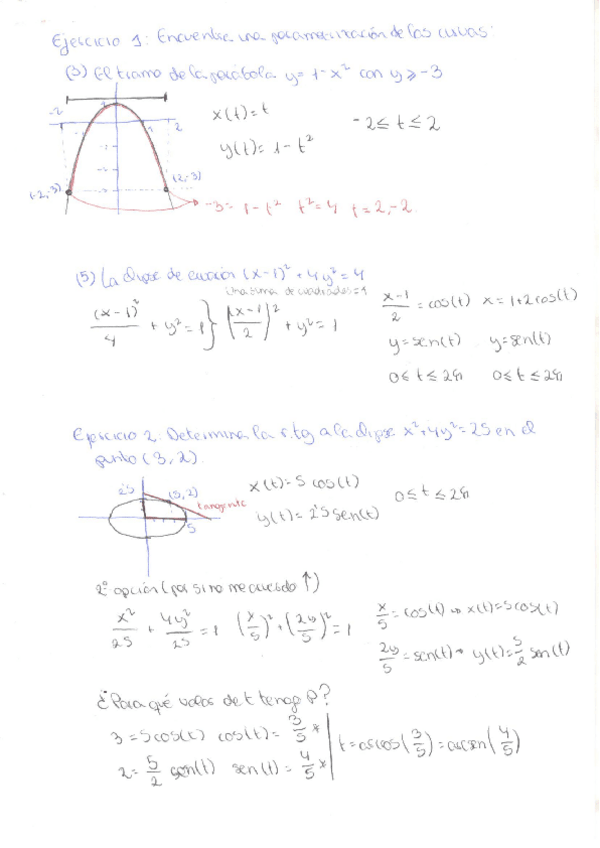 Ejercicio 1: Encuentra una parametrización de las curvas:
(3) El tramo de la parábola y = 1 - x² con y ≥ -3
x(t) = t
-2 ≤ t ≤ 2
y(t) = 1 - t²
-2
1
1
2
(-2,-3)
(2,-3)
-3 = 1 - t² t² = 4 t = 2, -2.
(5) La elipse de ecuación (x-1)² + 4y² = 4
Una suma de cuadrados = 1
(x-1)²/4 + y² = 1 } ((x-1)/2)² + y² = 1
(x-1)/2 = cos(t) x = 1 + 2cos(t)
y = sen(t) y = sen(t)
0 ≤ t ≤ 2π 0 ≤ t ≤ 2π
Ejercicio 2: Determina la r.tg a la elipse x² + 4y² = 25 en el
punto (3,2).
2'5
(3,2)
tangente
5
x(t) = 5 cos(t)
0 ≤ t ≤ 2π
y(t) = 2'5 sen(t)
2ª opción (por si no me acuerdo ↑)
x²/25 + 4y²/25 = 1 (x/5)² + (2y/5)² = 1
x/5 = cos(t) → x(t) = 5cos(t)
2y/5 = sen(t) → y(t) = 5/2 sen(t)
¿Para qué valor de t tengo P?
3 = 5cos(t) cos(t) = 3/5 *
2 = 5/2 sen(t) sen(t) = 4/5 *
t = arcos(3/5) = arcsen(4/5)